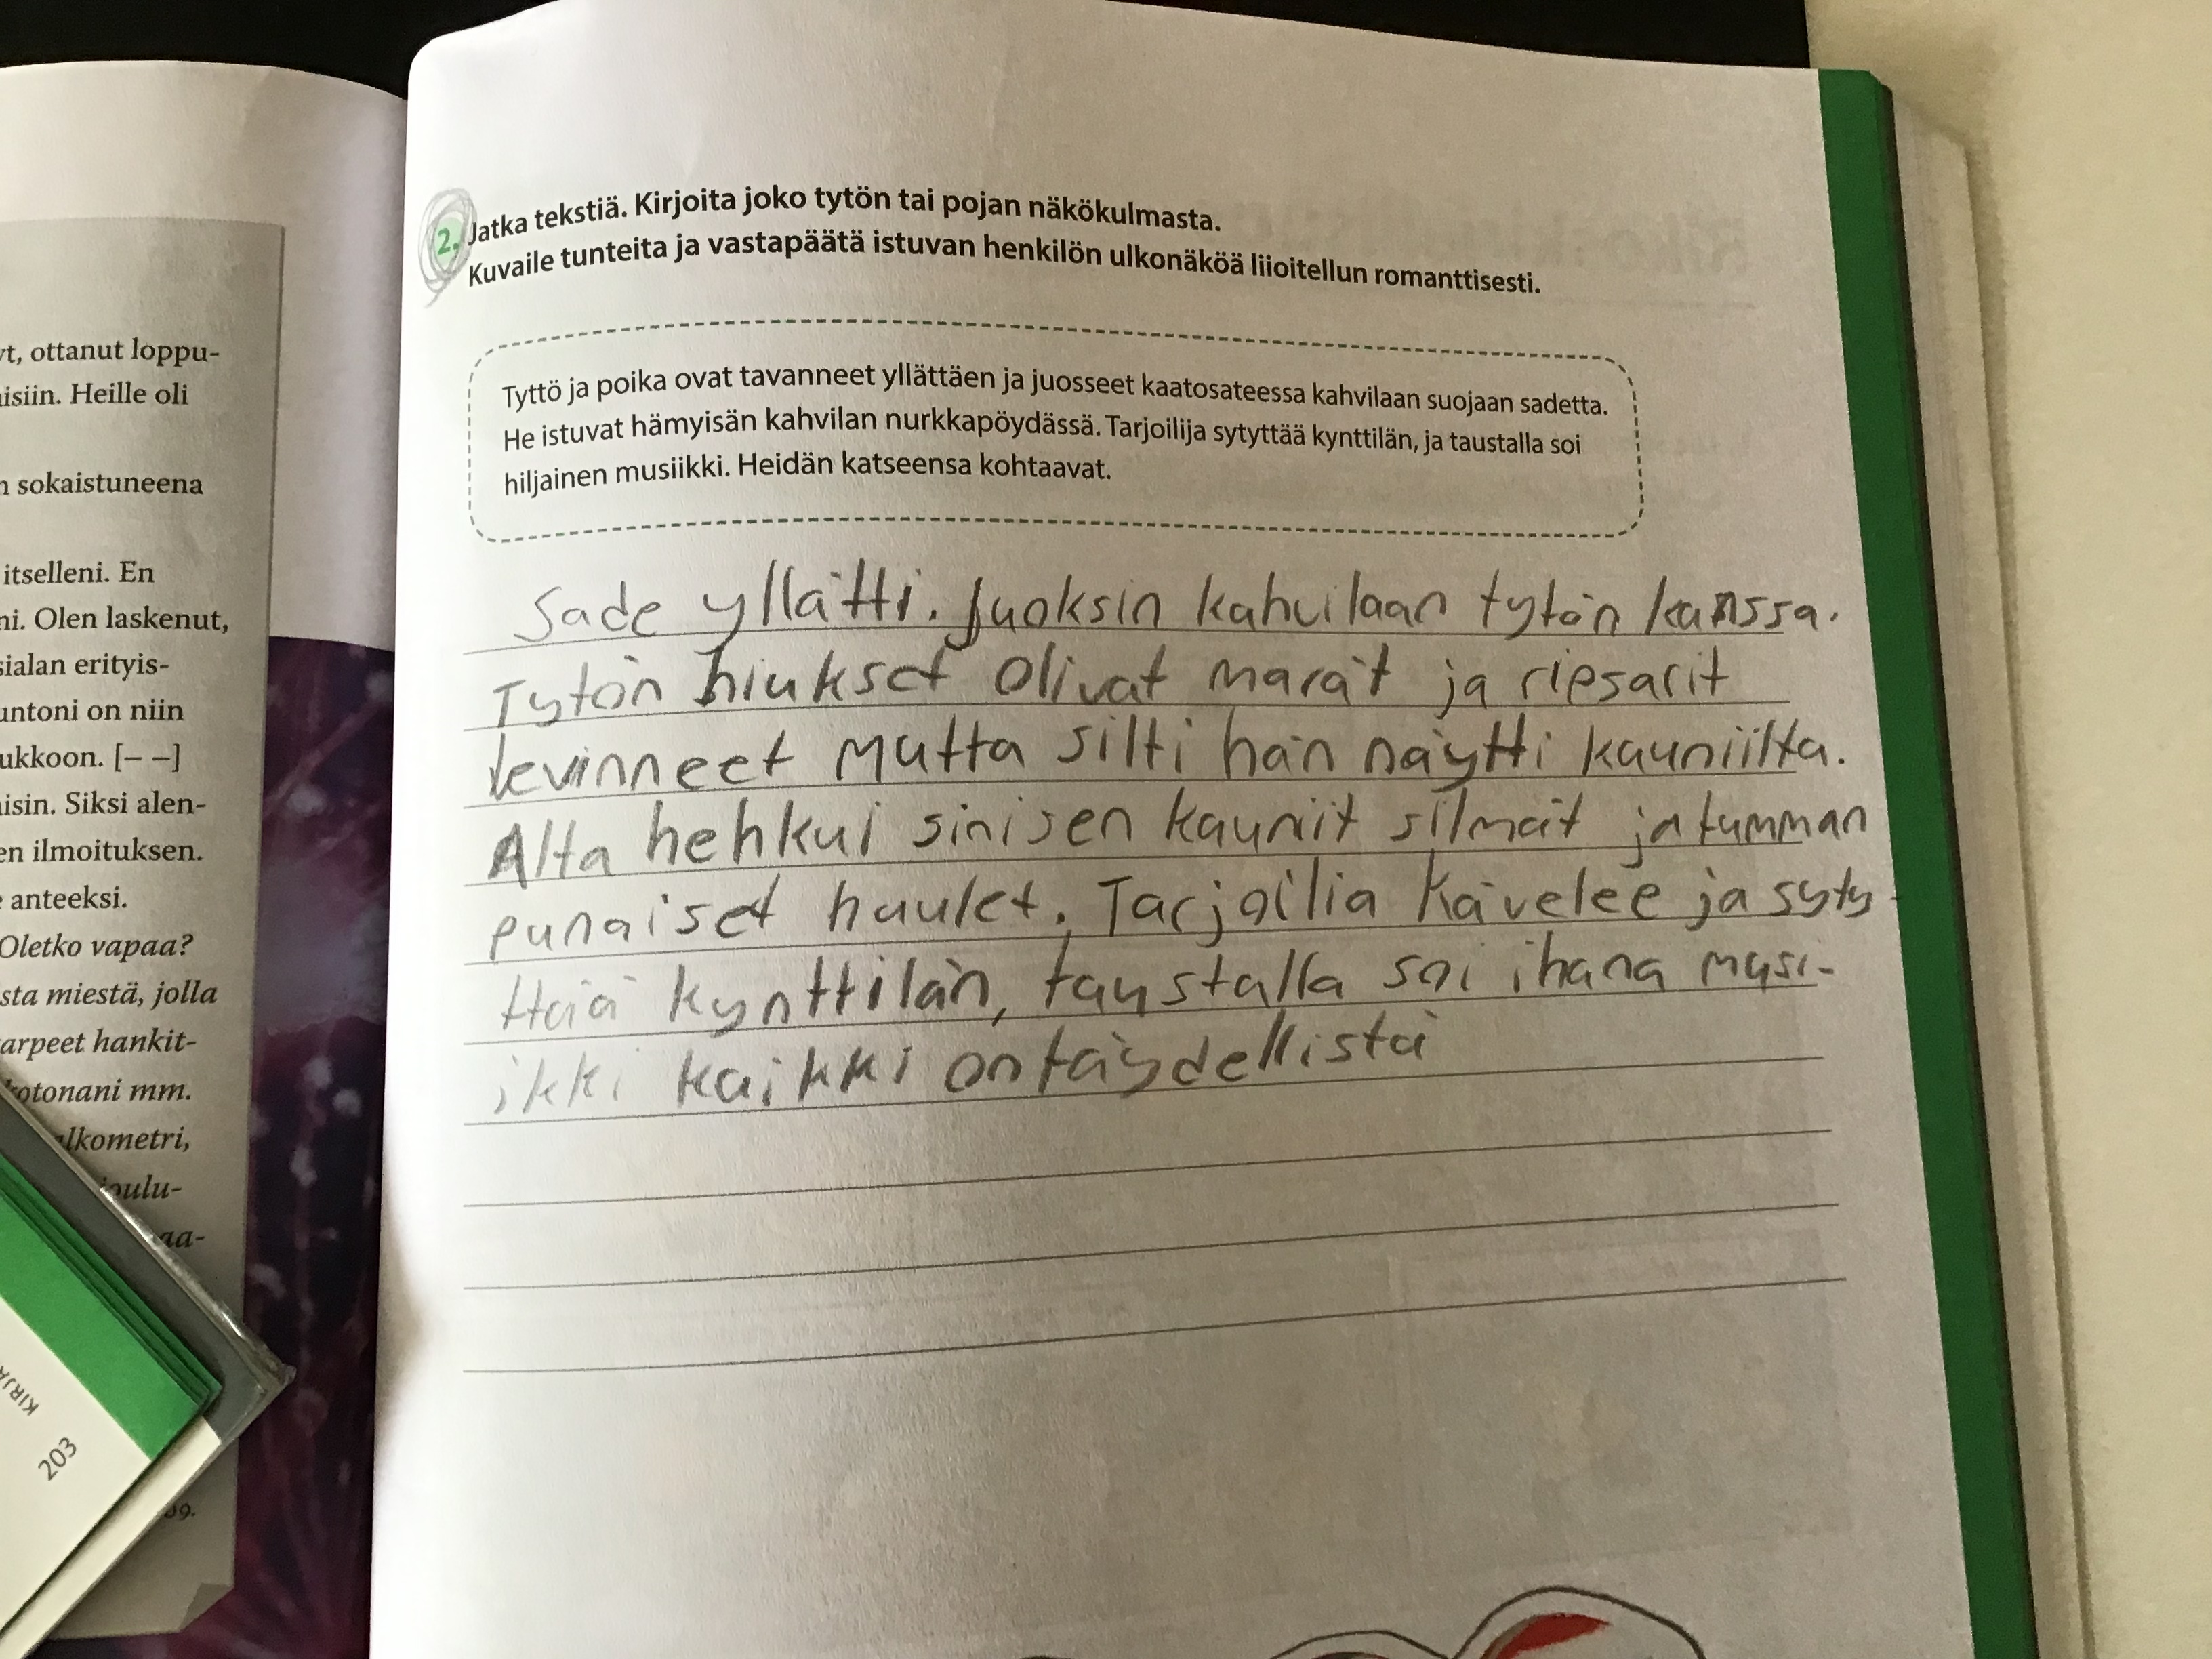 yt, ottanut loppu-
isiin. Heille oli
n sokaistuneena
itselleni. En
ni. Olen laskenut,
sialan erityis-
untoni on niin
ukkoon. [– –]
isin. Siksi alen-
en ilmoituksen.
anteeksi.
Oletko vapaa?
sta miestä, jolla
arpeet hankit-
kotonani mm.
alkometri,
joulu-
aa-
09.
KIRJA
203
2. Jatka tekstiä. Kirjoita joko tytön tai pojan näkökulmasta.
Kuvaile tunteita ja vastapäätä istuvan henkilön ulkonäköä liioitellun romanttisesti.
Tyttö ja poika ovat tavanneet yllättäen ja juosseet kaatosateessa kahvilaan suojaan sadetta.
He istuvat hämyisän kahvilan nurkkapöydässä. Tarjoilija sytyttää kynttilän, ja taustalla soi
hiljainen musiikki. Heidän katseensa kohtaavat.
Sade yllätti. Juoksin kahvilaan tytön kanssa.
Tytön hiukset olivat märät ja ripsarit
levinneet mutta silti hän näytti kauniilta.
Alta hehkui sinisen kauniit silmät ja tumman
punaiset huulet. Tarjoilia kävelee ja syty-
ttää kynttilän, taustalla soi ihana musi-
ikki kaikki on täydellistä